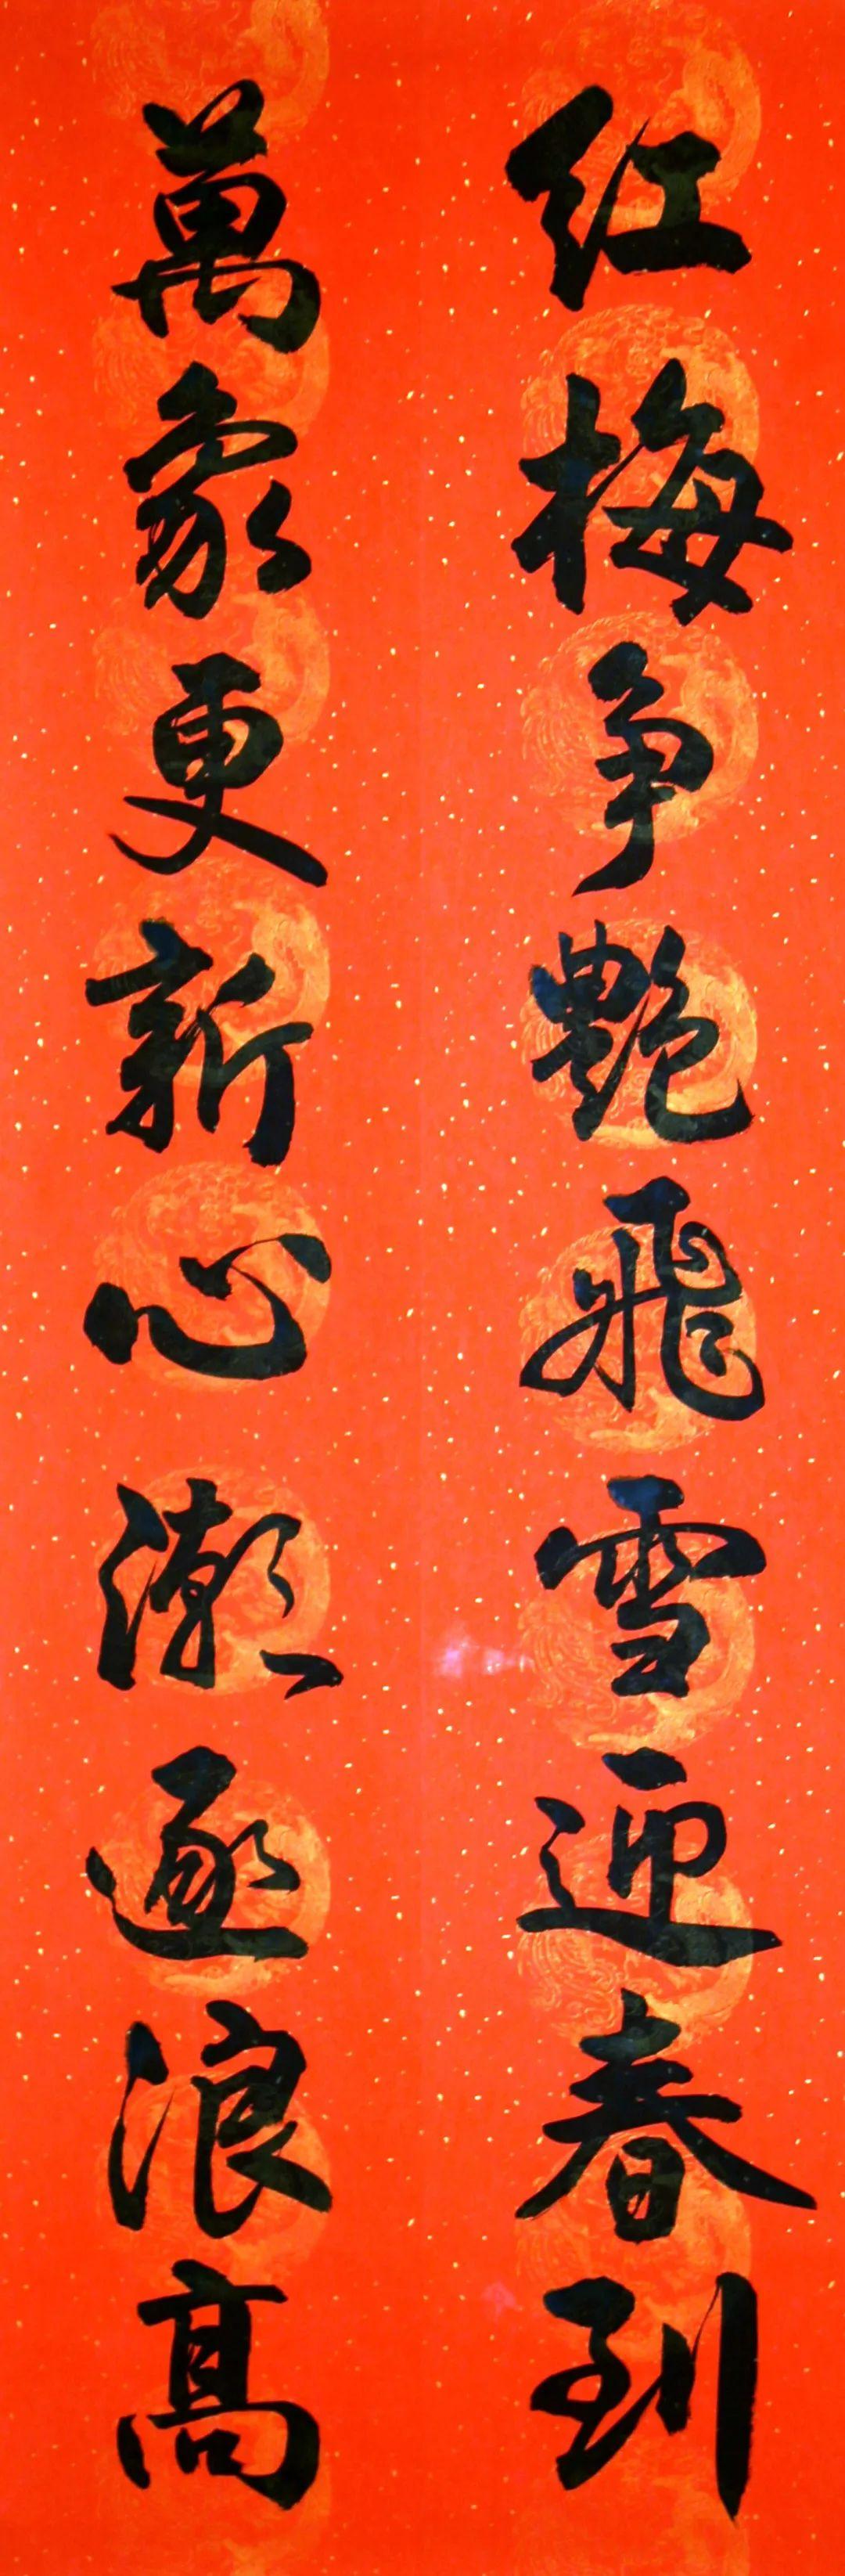 红梅争艳飞雪迎春到
萬象更新心潮逐浪高